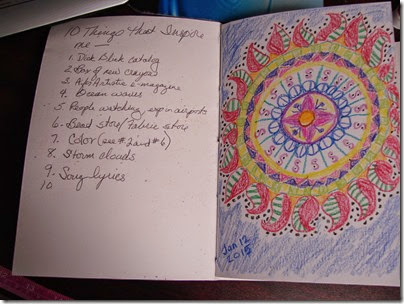 10 Things that Inspire
me —
1. Dick Blick catalog
2. Box of new crayons
3. Artistic magazine
4. Ocean waves
5. People watching, esp. in airports
6. Bead store/Fabric store
7. Color (see #2 and #6)
8. Storm clouds
9. Song lyrics
10.
Jan 12
2015